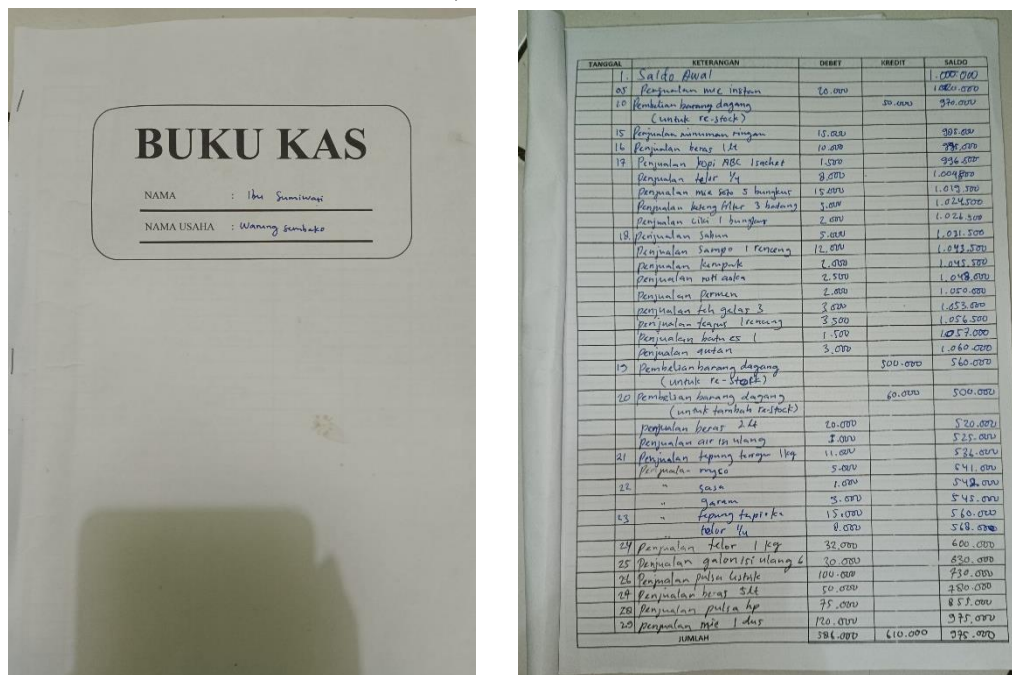 BUKU KAS
NAMA : Ibu Sumiwati
NAMA USAHA : Warung Sembako
TANGGAL KETERANGAN DEBET KREDIT SALDO
1. Saldo Awal 1.000.000
05 Penjualan mie instan 20.000 1.020.000
10 Pembelian barang dagang 50.000 970.000
(untuk re-stock)
15 Penjualan minuman ringan 15.000 985.000
16 Penjualan beras 1 lt 10.000 995.000
17 Penjualan kopi ABC 1 sachet 1.500 996.500
Penjualan telor 1/4 8.000
Penjualan mie soto 5 bungkus 15.000 1.019.500
Penjualan filter 3 batang 5.000 1.024.500
Penjualan ciki 1 bungkus 2.000 1.026.500
18 Penjualan sabun 5.000 1.031.500
Penjualan sampo 1 renceng 12.000 1.043.500
Penjualan kerupuk 2.000 1.045.500
Penjualan roti aoka 2.500 1.048.000
Penjualan permen 2.000 1.050.000
penjualan teh gelas 3 3.000 1.053.000
penjualan 1 renceng 3.500 1.056.500
Penjualan batu es 1 1.500 1.057.000
Penjualan 3.000 1.060.000
19 Pembelian barang dagang 500.000 560.000
(untuk re-stock)
20 Pembelian barang dagang 60.000 500.000
(untuk tambah re-stock)
penjualan beras 2 lt 20.000 520.000
Penjualan air isi ulang 5.000 525.000
21 Penjualan tepung terigu 1 kg 11.000 536.000
Penjualan 5.000 541.000
22 " sasa 1.000 542.000
" garam 3.000 545.000
23 " tepung tapioka 15.000 560.000
" telur 1/4 8.000 568.000
24 Penjualan telor 1 kg 32.000 600.000
25 Penjualan galon isi ulang 6 30.000 630.000
26 Penjualan pulsa listrik 100.000 730.000
27 Penjualan beras 5 lt 50.000 780.000
28 Penjualan pulsa hp 75.000 855.000
29 penjualan mie 1 dus 120.000 975.000
JUMLAH 586.000 610.000 975.000